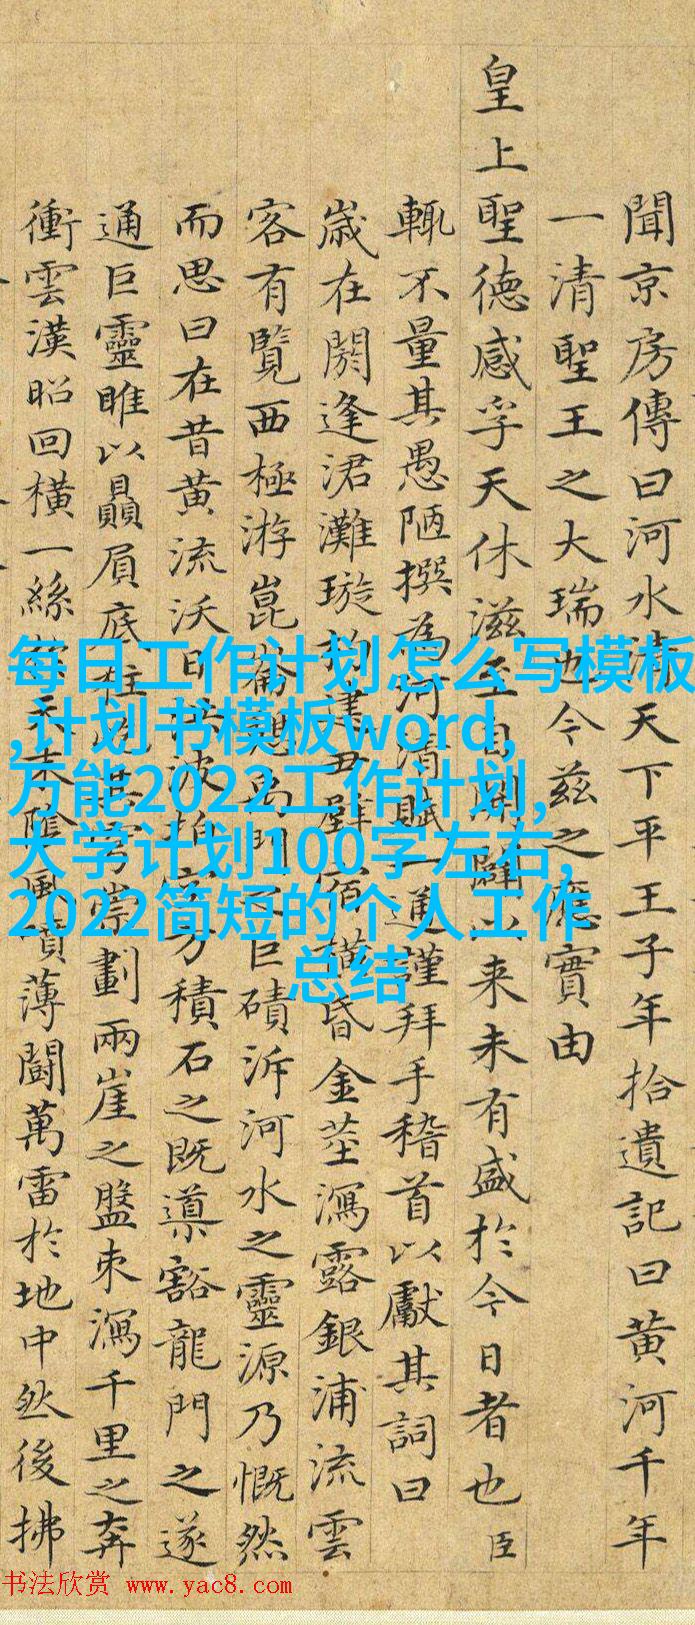 聞京房傳曰河水清天下平王子年拾遺記曰黄河千年
一清聖王之大瑞也今茲之應實由
皇上聖德感孚天休滋至自開闢以来未有盛於今日者也臣
輙不量其愚陋撰為河清賦一通謹拜手稽首以獻其詞曰
歲在閼逢涒灘璇杓建丑昏金莖瀉露銀浦流雲
客有覽西極游崑崙禹門之巨磧泝河水之靈源乃慨然
而思曰在昔黄流沃日洪波拍空方積石之既導豁龍門之遂
通巨靈睢以贔屓底柱崇劃兩崖之盤束瀉千里之奔
衝雲漢昭回横一絲於天末陰風噴薄鬭萬雷於地中然後拂
每日工作计划怎么写模板
,计划书模板word,
万能2022工作计划,
大学计划100字左右,
2022简短的个人工作
总结
书法欣赏 www.yac8.com